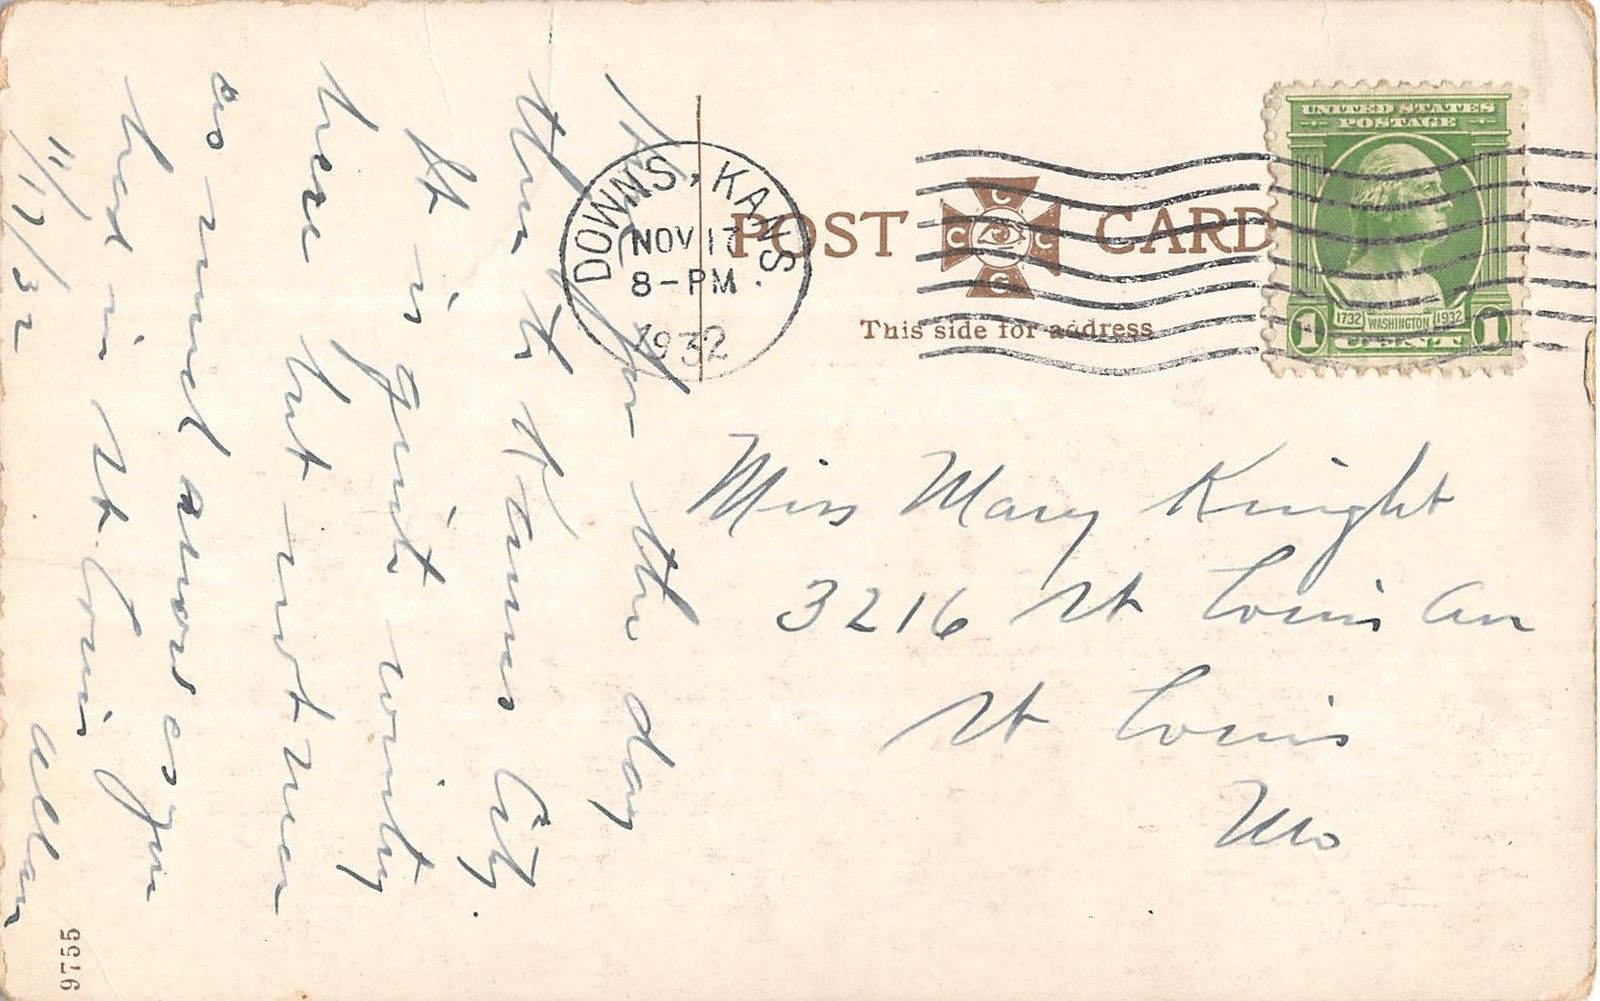 Here for the day
then to Kansas City.
It is quite wintry
here but not near
as much snow as you
had in St. Louis
Allan
11/17/32
DOWNS, KANS.
NOV 17
8-PM
1932
POST CARD
C C C C
This side for address
UNITED STATES
POSTAGE
1732 WASHINGTON 1932
1 CENT 1
Miss Mary Knight
3216 St Louis Ave
St Louis
Mo
9755